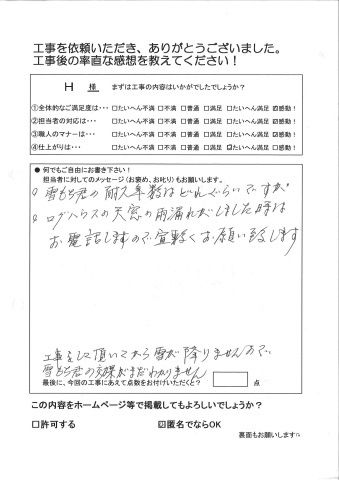 工事を依頼いただき、ありがとうございました。
工事後の率直な感想を教えてください！
H 様 まずは工事の内容はいかがでしたでしょうか？
①全体的なご満足度は…□たいへん不満 □不満 □普通 □満足 □たいへん満足 ☑感動！
②担当者の対応は…□たいへん不満 □不満 □普通 □満足 □たいへん満足 ☑感動！
③職人のマナーは…□たいへん不満 □不満 □普通 □満足 □たいへん満足 ☑感動！
④仕上がりは…□たいへん不満 □不満 □普通 □満足 □たいへん満足 ☑感動！
● 何でもご自由にお書き下さい！
担当者に対してのメッセージ（お褒め、お叱り）もお願いします。
雪もち君の耐久年数はどれぐらいですか
ログハウスの天窓の雨漏れがしました時は
お電話しますので宜敷くお願い致します
工事をして頂いてから雪が降りませんので
雪もち君の効果がまだわかりません
最後に、今回の工事にあえて点数をお付けいただくと？ 点
この内容をホームページ等で掲載してもよろしいでしょうか？
□許可する ☑匿名でならOK
裏面もお願いします